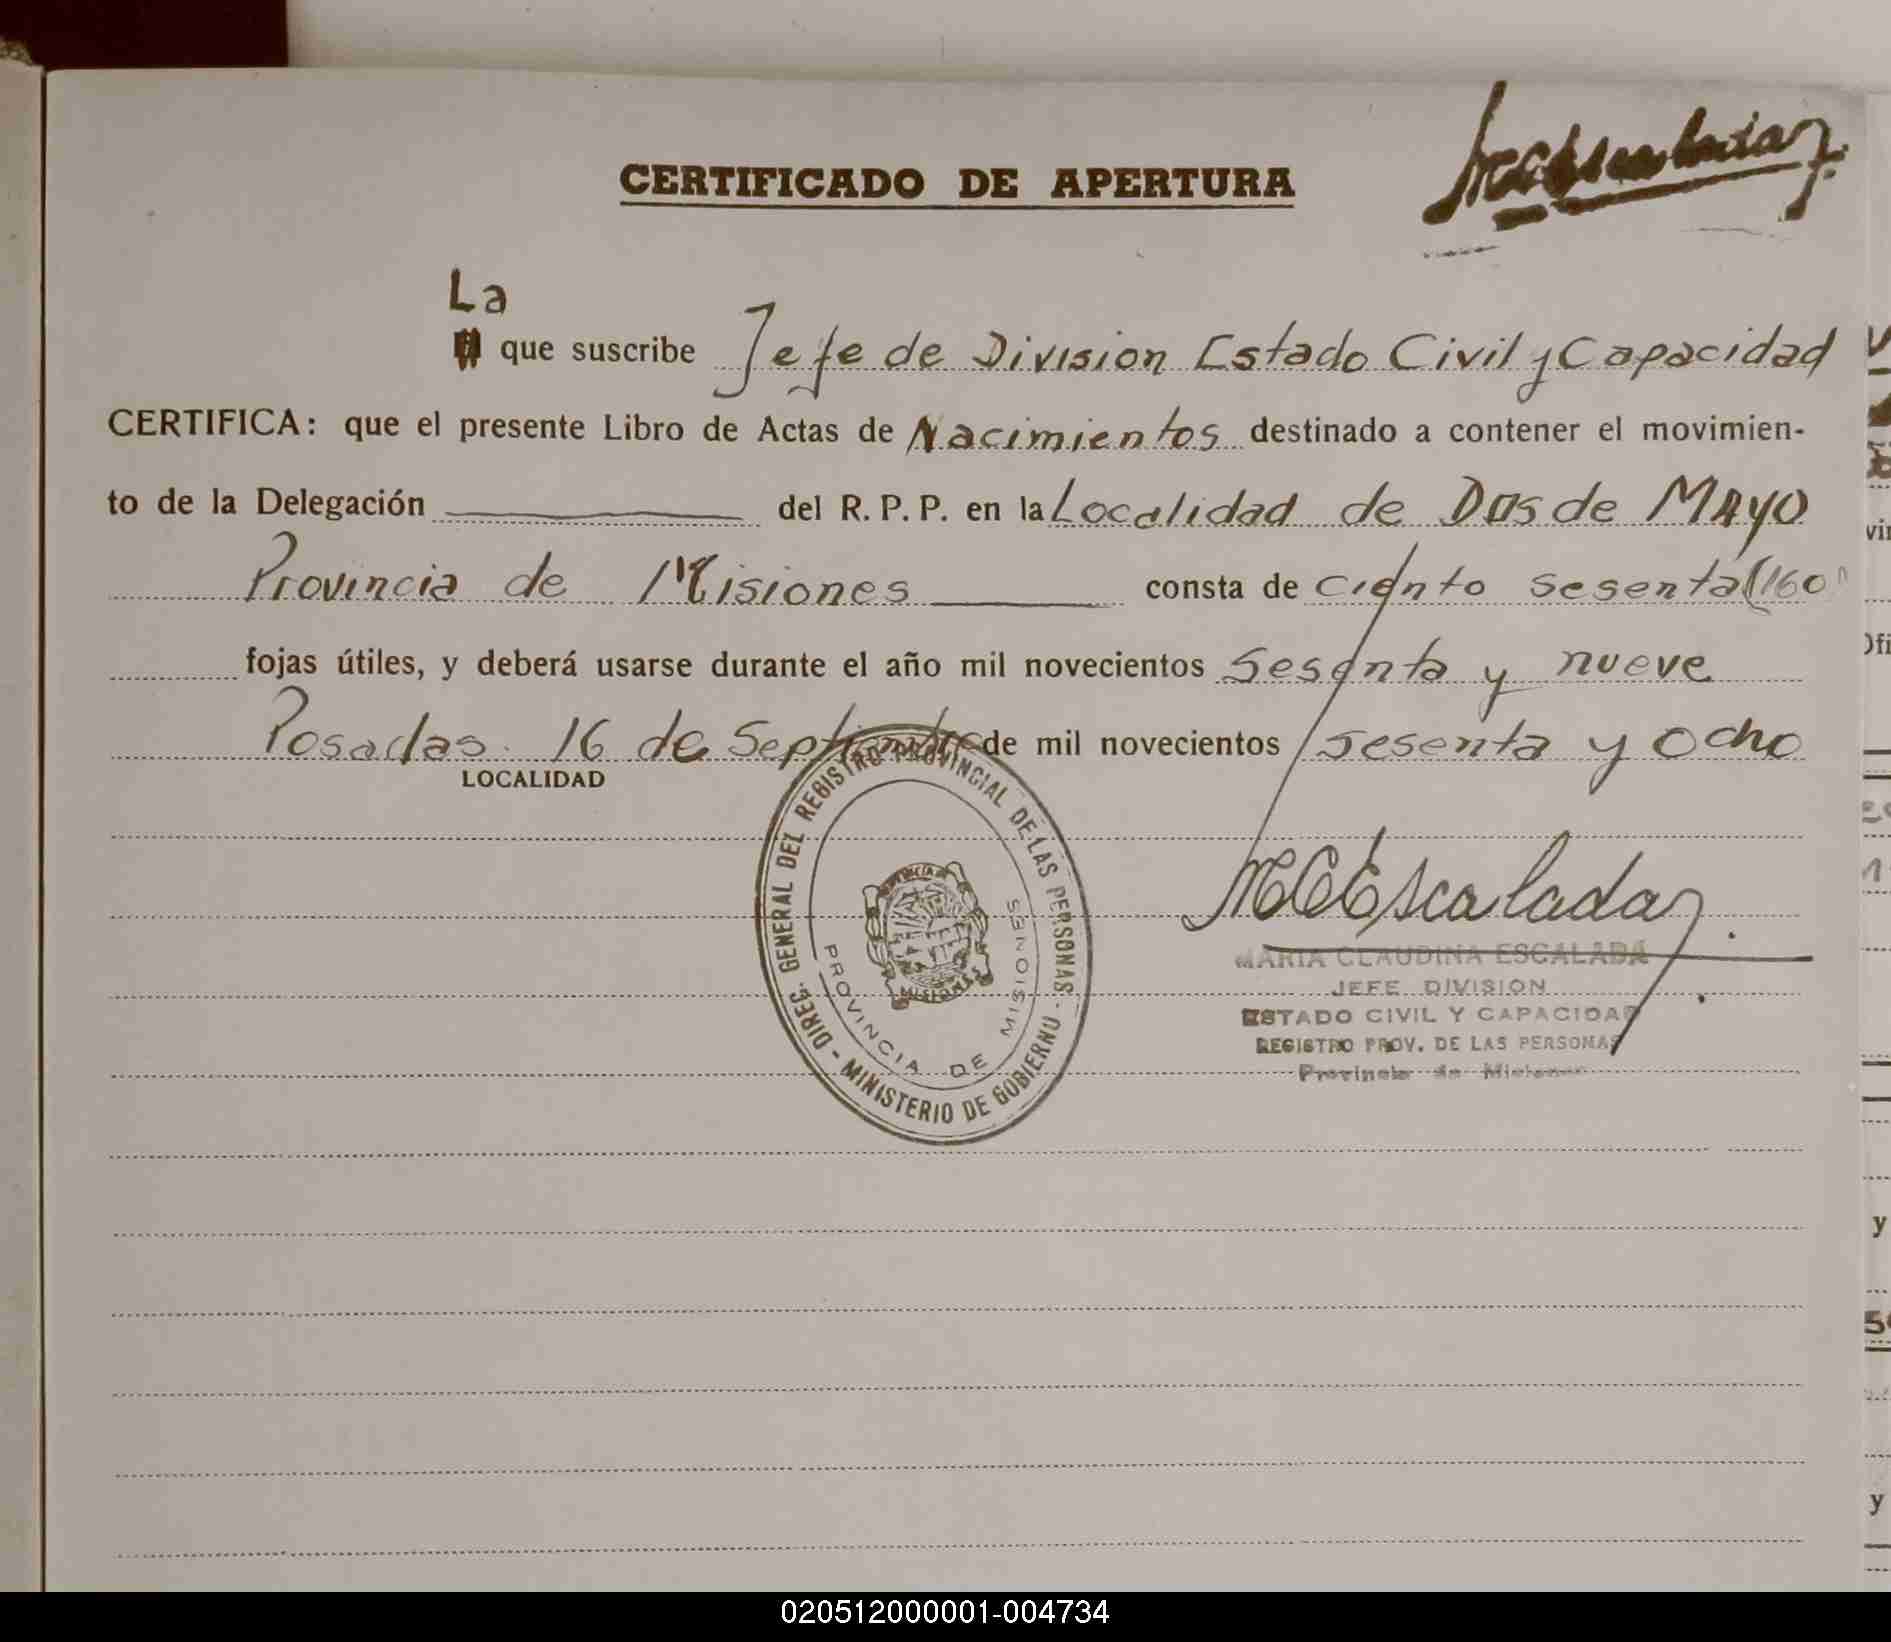 CERTIFICADO DE APERTURA
MCEscalada
La
que suscribe Jefe de Division Estado Civil y Capacidad
CERTIFICA: que el presente Libro de Actas de Nacimientos destinado a contener el movimien-
to de la Delegación del R. P. P. en la Localidad de Dos de MAYO
Provincia de Misiones consta de ciento sesenta (160)
fojas útiles, y deberá usarse durante el año mil novecientos Sesenta y nueve
Posadas 16 de Septiembre de mil novecientos sesenta y ocho
LOCALIDAD
DIREC. GENERAL DEL REGISTRO PROVINCIAL DE LAS PERSONAS - MINISTERIO DE GOBIERNO -
PROVINCIA DE MISIONES
MISIONES
MCEscalada
MARIA CLAUDINA ESCALADA
JEFE DIVISION
ESTADO CIVIL Y CAPACIDAD
REGISTRO PROV. DE LAS PERSONAS
Provincia de Misiones
020512000001-004734